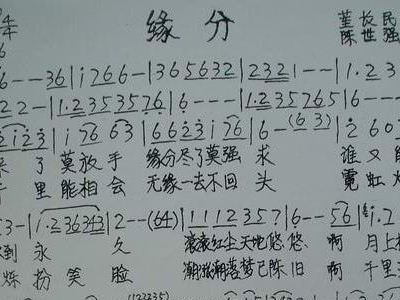 缘分
董长民
陈世强
6 - - 3 6 | i 7 6 6 - | 3 6 5 6 3 2 | 2 3 2 1 - - | 1. 2 3
2 2 - | 1. 2 3 5 3 5 7 6 | 6 - - - | 1. 2 3 5 7 6 5 | 6
i 2 3 | i 7 6 6 3 | 6 6 2 3 i 7 6 | 6 - (6 3) | 2 6 0
了莫放手 缘分尽了莫强求 谁又
里能相会 无缘一去不回头 霓虹
3 - | 1. 2 3 6 3 4 3 | 2 - - (6 4) | 1 1 1 2 3 5 7 | 6 - - 5 6 | i. 2
到永久 滚滚红尘天地悠悠 啊 月上
烁扮笑脸 潮涨潮落梦已陈旧 啊 千里